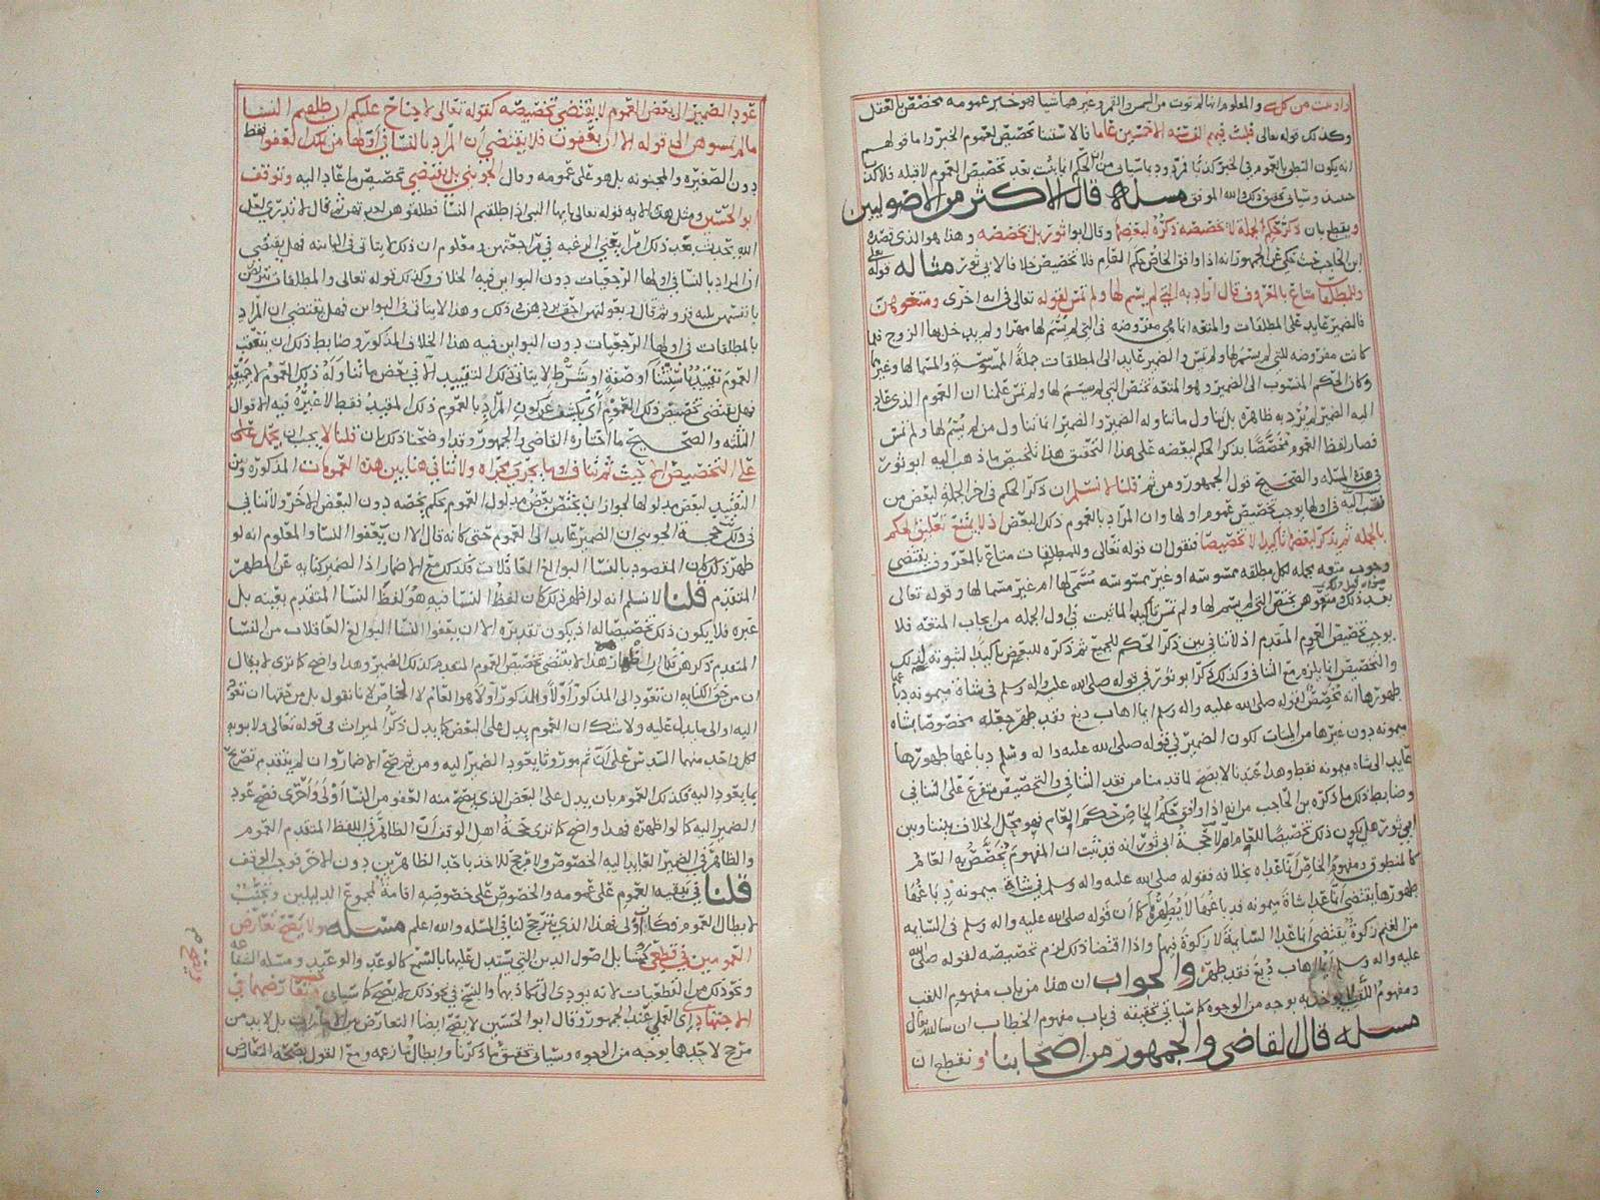 والمعلوم انها لم توت من السمس والقمر وغيرهما شيا فهو خبر عمومه مخصص بالعقل
وكذلك قوله تعالى فلبث فيهم الف سنه الا خمسين عاما فالاستثنا تخصيص لعموم الخبر واما قولهم
انه يكون التطرق بالعموم في الخبر كذبا فمردود بما سياتي من ان الحكم انما يثبت بعد تخصيص العموم لا قبله فلا كذب
حينيذ وسياتي تحقيق ذلك والله الموفق مسئلة قال الاكثر من الاصوليين
ويقطع بان ذكر حكم لجملة لا يخصصه ذكره لبعضها وقال ابو ثور بل يخصصه وهذا هو الذي قصده
ابن الحاجب حيث حكى عن الجمهور انه اذا وافق الخاص حكم العام فلا تخصيص خلافا لابي ثور مثاله قوله تعالى
وللمطلقات متاع بالمعروف قال اراد به التي لم يسم لها ولم تمس لقوله تعالى في ايه اخرى ومتعوهن
فالضمير عايد على المطلقات والمتعه انما هي مفروضه في التي لم يسم لها مهرا ولم يدخل بها الزوج فلما
كانت مفروضه للتي لم يسم لها ولم تمس والضمير عايد الى المطلقات جملة الممسوسة والمسما لها وغيرهما
وكان الحكم المنسوب الى الضمير وهو المتعه تختص التي لم يسم لها ولم تمس علمنا ان العموم الذي عاد
اليه الضمير لم يرد به ظاهره بل يتناول ما تناوله الضمير والضمير انما تناول من لم يسم لها ولم تمس
فصار لفظ العموم مخصصا بذكر الحكم لبعضه على هذا التحقيق هذا تلخيص ما ذهب اليه ابو ثور
في هذه المسئله والصحيح قول الجمهور ومن ثم قلنا لا نسلم ان ذكر الحكم في اخر الجملة لبعض من
قصد اليه في اولها يوجب تخصيص عموم اولها وان المراد بالعموم ذلك البعض اذ لا يمتنع تعليق الحكم
بالجمله ثم يذكر لبعضها تاكيدا لا تخصيصا فنقول ان قوله تعالى وللمطلقات متاع بالمعروف يقتضي
وجوب متعه بجمله لكل مطلقه ممسوسه او غير ممسوسه مسمى لها ام غير مسما لها وقوله تعالى
بعد ذلك ومتعوهن يختص التي لم يسم لها ولم تمس تاكيدا لما ثبت في اول الجمله من ايجاب المتعه فلا
يوجب تخصيص العموم المتقدم اذ لا تنافي بين ذكر الحكم للجميع ثم ذكره للبعض تاكيدا لثبوته لذلك
والتخصيص انما يلزم مع التنافي وكذلك ذكر ابو ثور في قوله صلى الله عليه واله وسلم في شاة ميمونه دباغها
طهورها انه تخصيص لقوله صلى الله عليه واله وسلم ايما اهاب دبغ فقد طهر فجعله مخصوصا بشاه
ميمونه دون غيرها من الميتات لكون الضمير في قوله صلى الله عليه واله وسلم دباغها طهورها
عايد الى شاه ميمونه فقط وهذا عندنا لا يصح لما قدمنا من فقد التنافي والتخصيص متفرع على التنافي
وضابط ذلك ما ذكره بن الحاجب من انه اذا وافق حكم الخاص حكم العام فهو محل الخلاف بيننا وبين
ابي ثور هل يكون ذلك تخصيصا للعام ام لا حجة ابي ثور انه قد ثبت ان المفهوم يخصص به العام
كالمنطوق ومفهوم الخاص ان ما عداه بخلافه فقوله صلى الله عليه واله وسلم في شاة ميمونه دباغها
طهورها يقتضي ان ما عدا شاة ميمونه فدباغها لا يطهره كما ان قوله صلى الله عليه واله وسلم في السايمه
من الغنم زكوة يقتضي ان ما عدا السايمة لا زكوة فيها واذا اقتضا ذلك لزم تخصيصه لقوله صلى الله
عليه واله وسلم ايما اهاب دبغ فقد طهر والجواب ان هذا من باب مفهوم اللقب
ومفهوم اللقب لا يوخذ به بوجه من الوجوه كما سياتي تحقيقه في باب مفهوم الخطاب ان شا الله تعالى
مسئلة قال القاضي والجمهور من اصحابنا ونقطع ان
عود الضمير الى بعض العموم لا يقتضي تخصيصه كقوله تعالى لا جناح عليكم ان طلقتم النسا
ما لم تمسوهن الى قوله الا ان يعفون فلا يقتضي ان المراد بالنسا في اولها من يملك العفو فقط
دون الصغيره والمجنونه بل هو على عمومه وقال الجويني بل يقتضي تخصيص ما عاد اليه وتوقف
ابو الحسين ومثل هذه الايه قوله تعالى يا ايها النبي اذا طلقتم النسا فطلقوهن لعدتهن ثم قال لا تدري لعل
الله يحدث بعد ذلك امرا يعني الرغبه في مراجعتهن ومعلوم ان ذلك لا يتاتى في الباينه فهل يقتضي
ان المراد بالنسا في اولها الرجعيات دون البواين فيه الخلاف وكذلك قوله تعالى والمطلقات يتربصن
بانفسهن ثلثه قروء ثم قال وبعولتهن احق بردهن في ذلك وهذا لا يتاتى في البواين فهل يقتضي ان المراد
بالمطلقات في اولها الرجعيات دون البواين فيه هذا الخلاف المذكور وضابط ذلك ان يتعقب
العموم تقييد باستثنا او صفة او شرط لا يتاتى ذلك التقييد الا في بعض ما تناوله ذلك العموم لا جميعه
فهل يقتضي تخصيص ذلك العموم اي يكشف عن كون المراد بالعموم ذلك المقيد فقط لا غيره فيه الاقوال
الثلثه والصحيح ما اختاره القاضي والجمهور وقد اوضحنا ذلك بان قلنا لا يجب ان يحمل على
على التخصيص الا حيث ثم تناف او ما يجري مجراه ولا تنافي هنا بين هذه العمومات المذكوره وبين
التقييد لبعض مدلولها لجواز ان يختص بعض مدلول العموم بحكم يخصه دون البعض الاخر ولا تنافي
في ذلك حجة الجويني ان الضمير عايد الى العموم حتى كانه قال الا ان يعفوا النسا والمعلوم انه لو
ظهر ذلك كان المقصود بالنسا البوالغ العاقلات فكذلك مع الاضمار اذ الضمير كنايه عن المظهر
المتقدم قلنا لا نسلم انه لو اظهر ذلك كان لفظ النسا فيه هو لفظ النسا المتقدم بعينه بل
غيره فلا يكون ذلك تخصيصا له اذ يكون تقديره الا ان يعفوا النسا البوالغ العاقلات من النسا
المتقدم ذكرهن فكما ان اظهار هذا لا يقتضي تخصيص العموم المتقدم فكذلك الضمير وهذا واضح كما ترى لا يقال
ان من حق الكنايه ان تعود الى المذكور اولا والمذكور اولا هو العام لا الخاص لانا نقول بل من حقها ان تعود
اليه او الى ما يدل عليه ولا شك ان العموم يدل على البعض كما يدل ذكر الميراث في قوله تعالى ولابويه
لكل واحد منهما السدس على ان ثم موروثا يعود الضمير اليه ومن ثم صح الاضمار وان لم يتقدم تصريح
بما يعود اليه فكذلك العموم بان يدل على البعض الذي يصح منه العفو من النسا اولى واحرى فصح عود
الضمير اليه كما لو اظهره فهذا واضح كما ترى حجة اهل الوقف ان الظاهر في اللفظ المتقدم العموم
والظاهر في الضمير العايد اليه الخصوص ولا مرجح للاخذ باحد الظاهرين دون الاخر فوجب الوقف
قلنا في تبقيه العموم على عمومه والخصوص على خصوصيه اقامة لمجموع الدليلين وتجنب
لابطال العموم فكان اولى فهذا الذي يترجح لنا في المسئله والله اعلم مسئلة ولا يصح تعارض
العمومين في قطعي كمسايل اصول الدين التي يستدل عليها بالسمع كالوعد والوعيد ومسئله الشفاعه
ونحو ذلك من القطعيات لانه يودى الى تكاذبهما والنسخ في نحو ذلك لا يصح كما سياتي ويصح تعارضهما في
الاجتهادي اي العملي عند الجمهور وقال ابو الحسين لا يصح ايضا التعارض من الامارات بل لا بد من
مرجح لاحدهما بوجه من الوجوه وسياتي تحقيق ما ذكرنا وابطال ما زعمه ومع القول بصحه التعارض